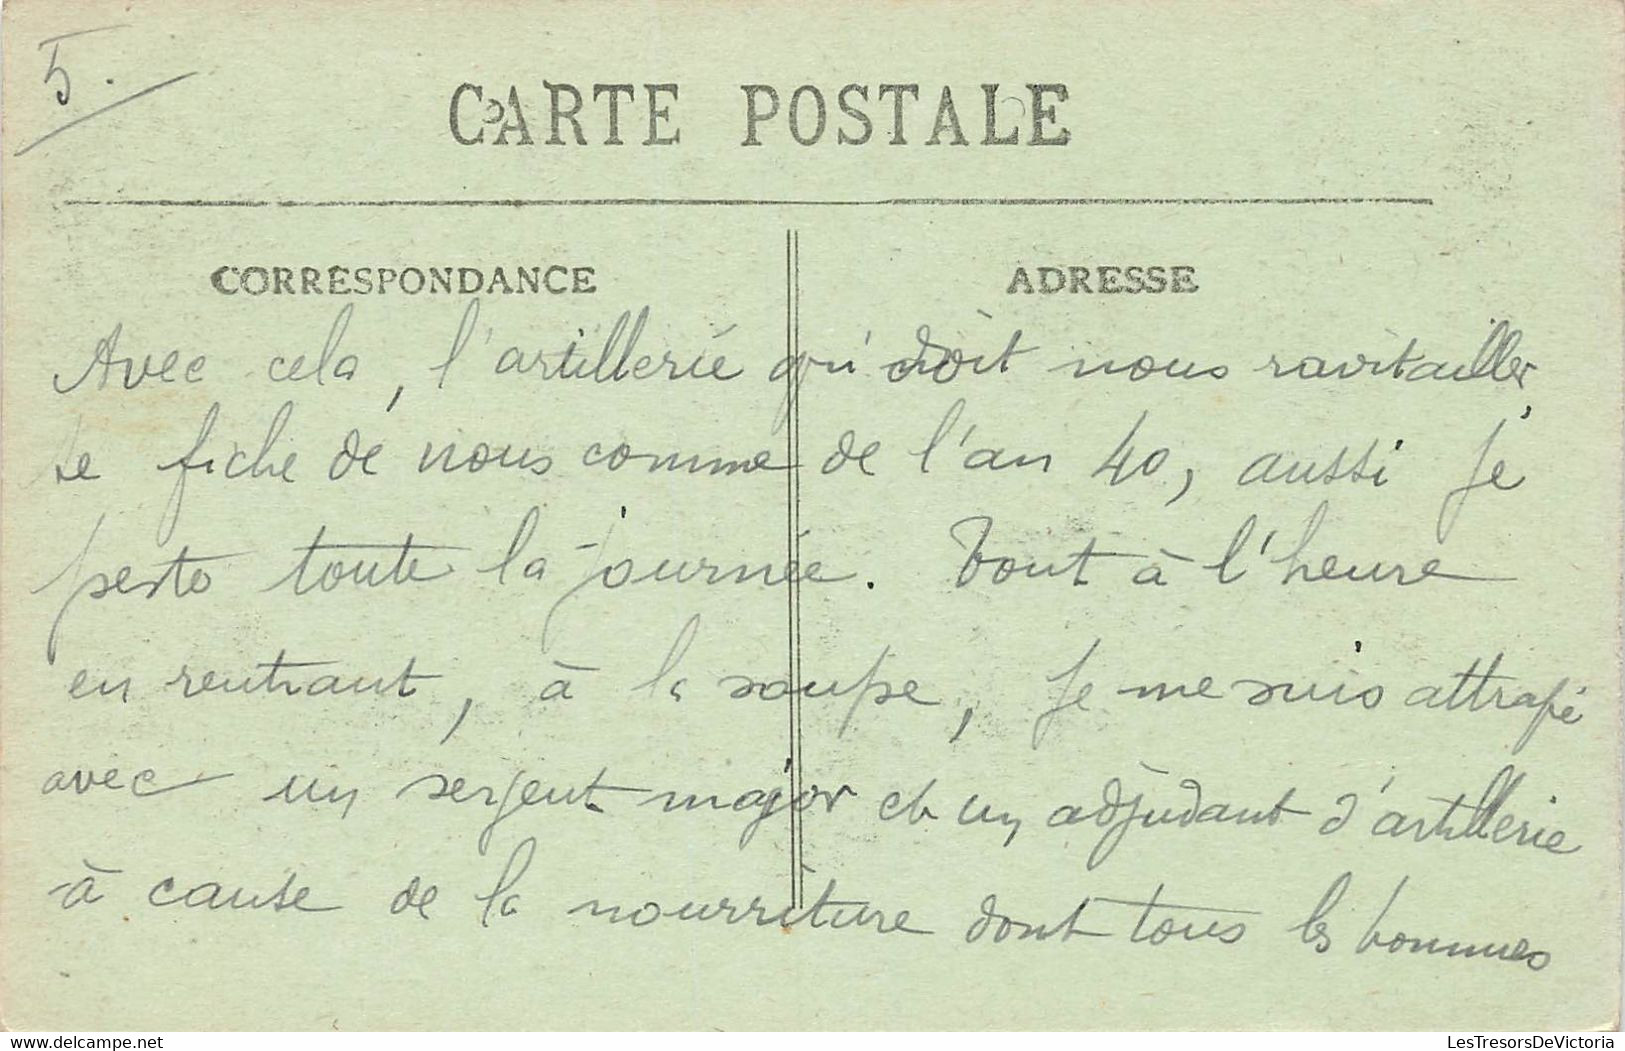 5.
CARTE POSTALE
CORRESPONDANCE
ADRESSE
Avec cela, l'artillerie qui doit nous ravitailler
se fiche de nous comme de l'an 40, aussi je
peste toute la journée. Tout à l'heure
en rentrant, à la soupe, je me suis attrapé
avec un sergent major et un adjudant d'artillerie
à cause de la nourriture dont tous les hommes
delcampe.net
LesTresorsDeVictoria